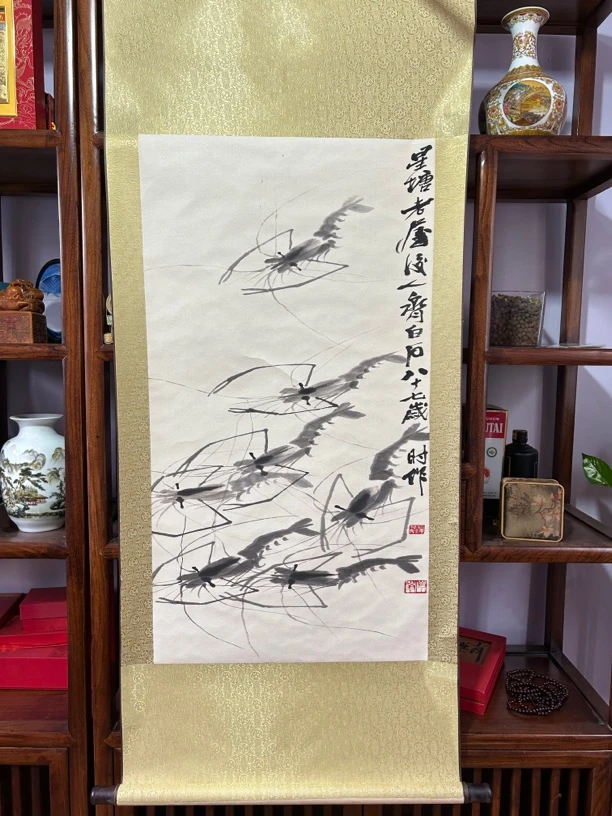 星塘老屋後人齊白石八十七歲時作
TAI